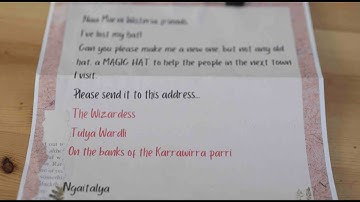 Naa Marni Wisteria primals
I've lost my hat!
Can you please make me a new one, but not any old
hat, a MAGIC HAT to help the people in the next town
I visit.
Please send it to this address...
The Wizardess
Tulya Wardli
On the banks of the Karrawirra parri
Ngaitalya